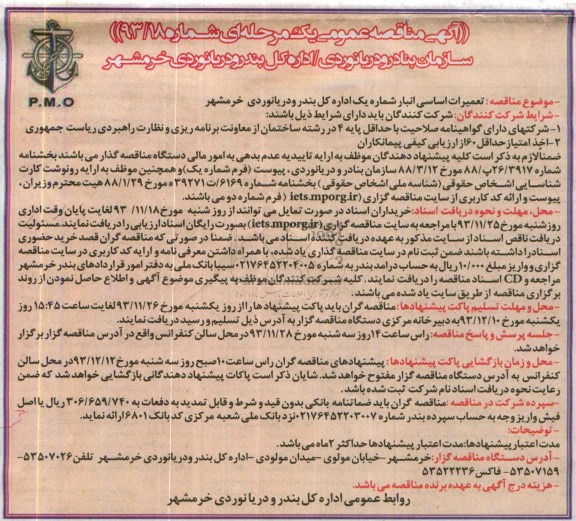 ((آگهی مناقصه عمومی یک مرحله‌ای شماره ۹۳/۱۸))
سازمان بنادر و دریانوردی / اداره کل بندر و دریانوردی خرمشهر
P.M.O
-موضوع مناقصه: تعمیرات اساسی انبار شماره یک اداره کل بندر و دریانوردی خرمشهر
-شرایط شرکت کنندگان: شرکت کنندگان باید دارای شرایط ذیل باشند:
۱-شرکتهای دارای گواهینامه صلاحیت با حداقل پایه ۴ در رشته ساختمان از معاونت برنامه ریزی و نظارت راهبردی ریاست جمهوری
۲-اخذ امتیاز حداقل ۶۰ از ارزیابی کیفی پیمانکاران
ضمنا لازم به ذکر است کلیه پیشنهاد دهندگان موظف به ارایه تاییدیه عدم بدهی به امور مالی دستگاه مناقصه گذار می باشند بخشنامه
شماره ۲۶/۳۹۱۷پ/۸۸ مورخ ۸۸/۳/۱۲ سازمان بنادر و دریانوردی، پیوست (فرم شماره یک) و همچنین موظف به ارایه رونوشت کارت
شناسایی اشخاص حقوقی (شناسه ملی اشخاص حقوقی) بخشنامه شماره ۶۱۶۹/ت۳۹۲۷۱ه مورخ ۸۸/۱/۲۹ هیت محترم وزیران،
پیوست و ارائه کد کاربری از سایت مناقصه گزاری (iets.mporg.ir) (فرم شماره دو می باشند.
-محل، مهلت و نحوه دریافت اسناد: خریداران اسناد در صورت تمایل می توانند از روز شنبه مورخ ۹۳/۱۱/۱۸ لغایت پایان وقت اداری
روز شنبه مورخ ۹۳/۱۱/۲۵ با مراجعه به سایت مناقصه گزاری (iets.mporg.ir) بصورت رایگان اسناد ارزیابی را دریافت نمایند. مسئولیت
دریافت ناقص اسناد از سایت مذکور به عهده دریافت کننده اسناد می باشد. ضمنا در صورتی که مناقصه گران قصد خرید حضوری
اسناد را داشته باشند ضمن ثبت نام در سایت مناقصه گذاری یاد شده، با همراه داشتن معرفی نامه و ارایه کد کاربری در سایت مناقصه
گزاری و واریز مبلغ ۱۰/۰۰۰ ریال به حساب درآمد بندر به شماره ۲۱۷۶۴۵۲۲۰۴۰۰۵ سیبا بانک ملی به دفتر امور قراردادهای بندر خرمشهر
مراجعه و CD اسناد مناقصه را دریافت نمایند. کلیه شرکت کنندگان موظف به پیگیری موضوع آگهی و اطلاع حاصل نمودن از روند
برگزاری مناقصه از طریق سایت یاد شده می باشند.
-محل و مهلت تسلیم پاکت پیشنهادها: مناقصه گران باید پاکت پیشنهادها را از روز یکشنبه مورخ ۹۳/۱۱/۲۶ لغایت ساعت ۱۵:۴۵ روز
یکشنبه مورخ ۹۳/۱۲/۱۰ به دبیرخانه مرکزی دستگاه مناقصه گزار به آدرس ذیل تسلیم و رسید دریافت نمایند.
-جلسه پرسش و پاسخ مناقصه: راس ساعت ۱۴ روز سه شنبه مورخ ۹۳/۱۱/۲۸ در محل سالن کنفرانس واقع در آدرس مناقصه گزار برگزار
خواهد شد.
-محل و زمان بازگشایی پاکت پیشنهادها: پیشنهادهای مناقصه گران راس ساعت ۱۰ صبح روز سه شنبه مورخ ۹۳/۱۲/۱۲ در محل سالن
کنفرانس به آدرس دستگاه مناقصه گزار مفتوح خواهد شد. شایان ذکر است پاکات پیشنهاد دهندگانی بازگشایی خواهد شد که ضمن
رعایت نحوه دریافت اسناد نام شرکت ثبت شده باشد.
-سپرده شرکت در مناقصه: مناقصه گران باید ضمانتنامه بانکی بدون قید و شرط و قابل تمدید به دفعات به ۳۰۶/۶۵۹/۷۴۰ ریال یا اصل
فیش واریز وجه به حساب سپرده بندر شماره ۲۱۷۶۴۵۲۲۰۳۰۰۷ نزد بانک ملی شعبه مرکزی کد بانک ۶۸۰۱ ارائه نماید.
-توضیحات:
مدت اعتبار پیشنهادها: مدت اعتبار پیشنهادها حداکثر ۲ ماه می باشد.
-آدرس دستگاه مناقصه گزار: خرمشهر -خیابان مولوی -میدان مولودی -اداره کل بندر و دریانوردی خرمشهر تلفن ۵۳۵۰۷۰۲۶-
۵۳۵۰۷۱۵۹- فاکس ۵۳۵۲۲۲۳۶
-هزینه درج آگهی به عهده برنده مناقصه می باشد.
روابط عمومی اداره کل بندر و دریانوردی خرمشهر